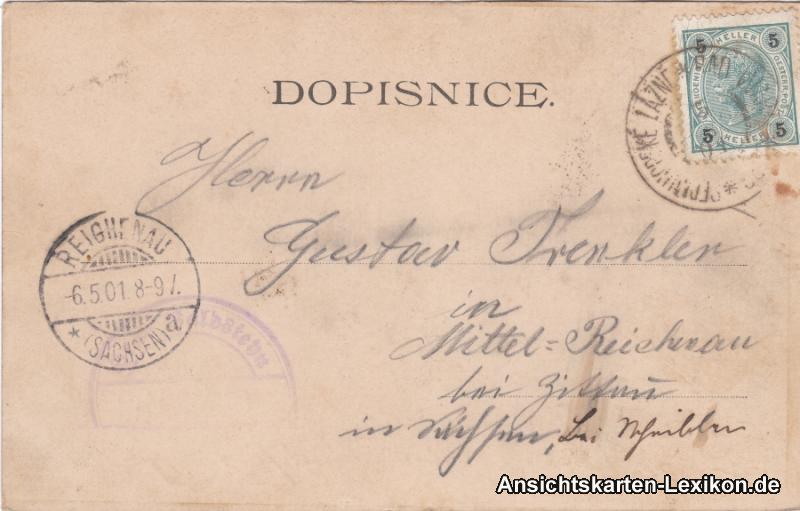 DOPISNICE.
5 HELLER 5
5 HELLER 5
LÁZNĚ BAD
Herrn
Gustav Trenkler
in
Mittel=Reichenau
bei Zittau
in Sachsen, bei
REICHENAU
-6.5.01. 8-9V.
* (SACHSEN) a.
Ansichtskarten-Lexikon.de